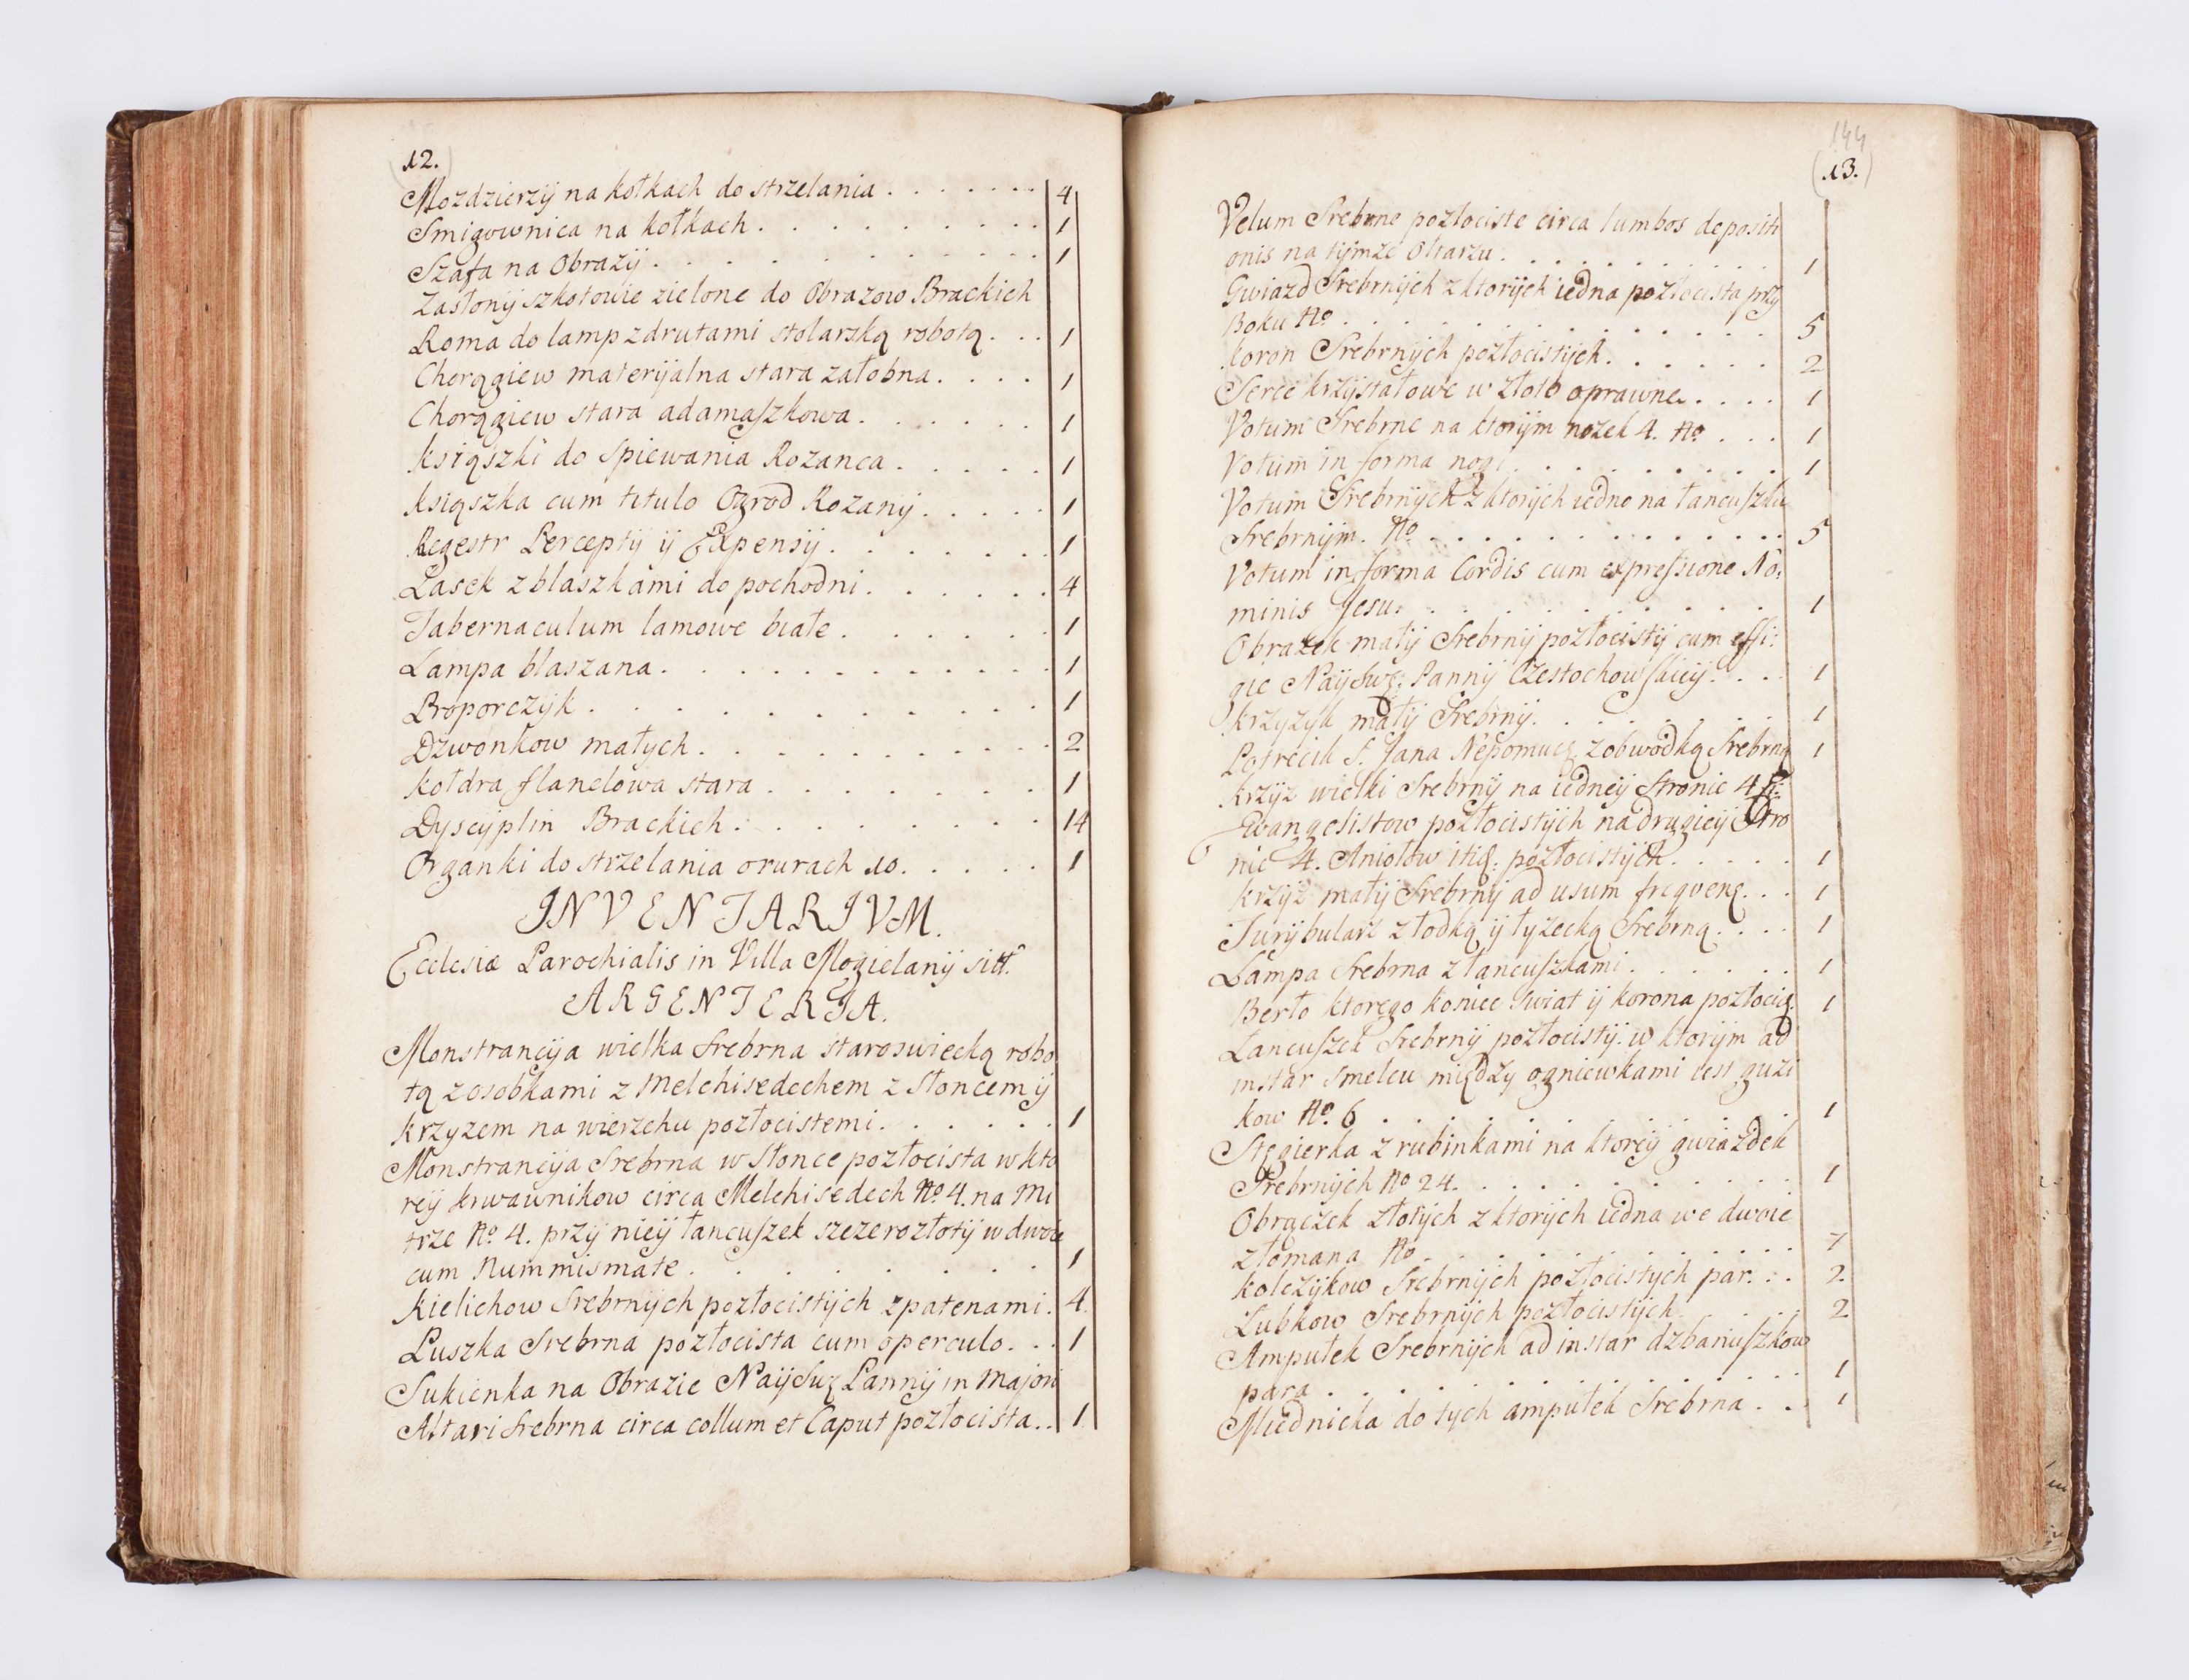 12.
Mozdzierzÿ na kołkach do strzelania . . . . . . . 4
Smigownica na kołkach . . . . . . . . . 1
Szafa na Obrazÿ . . . . . . . . . . . 1
Zasłonÿ szkotowie zielone do Obrazow Brackich
Roma do lamp z drutami stolarską robotą . . . 1
Chorągiew materÿalna stara załobna . . . . 1
Chorągiew stara adamaszkowa . . . . . . 1
Ksiąszki do Spiewania Rozanca . . . . . 1
Ksiąszka cum titulo Ogrod Rozanÿ . . . . . 1
Regestr Perceptÿ ÿ Expensÿ . . . . . . . 1
Lasek z blaszkami do pochodni . . . . . . 4
Tabernaculum lamowe białe . . . . . . 1
Lampa blaszana . . . . . . . . . . . 1
Proporczÿk . . . . . . . . . . . 1
Dzwonkow małych . . . . . . . . . . 2
Kołdra flanelowa stara . . . . . . . 1
Dyscÿplin Brackich . . . . . . . . . 14
Organki do strzelania o rurach 10. . . . . 1
INVENTARIVM.
Ecclesiæ Parochialis in Villa Mogielanÿ sitt.
ARGENTERIA.
Monstrancÿa wielka Srebrna staroswiecką robo
tą z osobkami z Melchisedechem z Słoncem ÿ
Krzyzem na wierzchu pozłocistemi . . . . . . 1
Monstrancÿa Srebrna w Słonce pozłocista w kto
reÿ krwawnikow circa Melchisedech No. 4. na Mi
trze No. 4. przÿ nieÿ łancuszek szczerozłotÿ w dwoie
cum Nummismate . . . . . . . . 1
Kielichow Srebrnÿch pozłocistÿch z patenami . 4.
Puszka Srebrna pozłocista cum operculo . . . 1
Sukienka na Obrazie Naÿswę Pannÿ in Majori
Altari Srebrna circa collum et Caput pozłocista . . 1
144
(13.)
Velum Srebrne pozłociste circa lumbos depositi
onis na tÿmze Ołtarzu . . . . . . . . . . 1
Gwiazd Srebrnÿch z ktorÿch iedna pozłocista przÿ
Boku No . . . . . . . . . . . . . 5
Koron Srebrnÿch pozłocistÿch . . . . . . 2
Serce krzÿstałowe w złoto oprawne . . . . 1
Votum Srebrne na ktorÿm nozek 4. No . . . 1
Votum in forma nogi . . . . . . . . . 1
Votum Srebrnÿch z ktorÿch iedno na łancuszku
Srebrnÿm. No . . . . . . . . . . . . 5
Votum in forma Cordis cum expressione No:
minis Jesu . . . . . . . . . . . . 1
Obrazek małÿ Srebrnÿ pozłocistÿ cum effi:
gie Naÿswę: Pannÿ Czestochowskieÿ . . . 1
Krzyzÿk małÿ Srebrnÿ . . . . . . . . 1
Potrecik S. Jana Nepomucę z obwodką Srebrną 1
Krzÿz wielki Srebrnÿ na iedneÿ Stronie 4
Ewangelistow pozłocistÿch na drugieÿ Stro
nie 4. Aniołow itię: pozłocistÿch . . . . . 1
Krzÿz małÿ Srebrnÿ ad usum frequenę . . . 1
Turÿbularz z łodką ÿ łyzecką Srebrną . . . . 1
Lampa Srebrna z łancuszkami . . . . . . 1
Berło ktorego koniec Swiat ÿ korona pozłocią: 1
Lancuszek Srebrnÿ pozłocistÿ w ktorÿm ad
instar Smelcu międzÿ ogniewkami iest guzi
kow No. 6 . . . . . . . . . . . . 1
Stęgierka z rubinkami na ktoreÿ gwiazdek
Srebrnÿch No 24. . . . . . . . . . . 1
Obrączek złotÿch z ktorÿch iedna we dwoie
złomana No . . . . . . . . . . . 7
Kolczykow Srebrnÿch pozłocistych par . . . 2.
Lubkow Srebrnÿch pozłocistÿch . . . . . 2
Ampułek Srebrnÿch ad instar dzbaniuszkow
para . . . . . . . . . . . . 1
Miednicka do tych ampułek Srebrna . . . 1